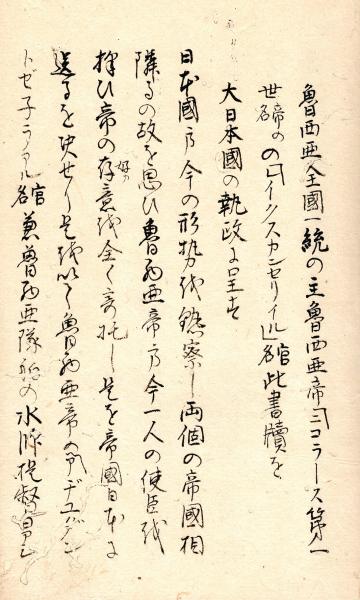 魯西亜全國一統の主魯西亜帝「ニコラース第一
世帝の名の「イクスカンセリイル」官名此書牘を
大日本國の執政に呈す
日本國乃今の形勢を熟察し両個の帝國相
隣るの故を思ひ魯西亜帝乃今一人の使臣を
擇ひ帝の存意を全く寄托し是を帝國日本に
好みの
送るを決せり是を以て魯西亜帝の「アデユダン
トゼ子ラール官名兼魯西亜隊船の水師提督